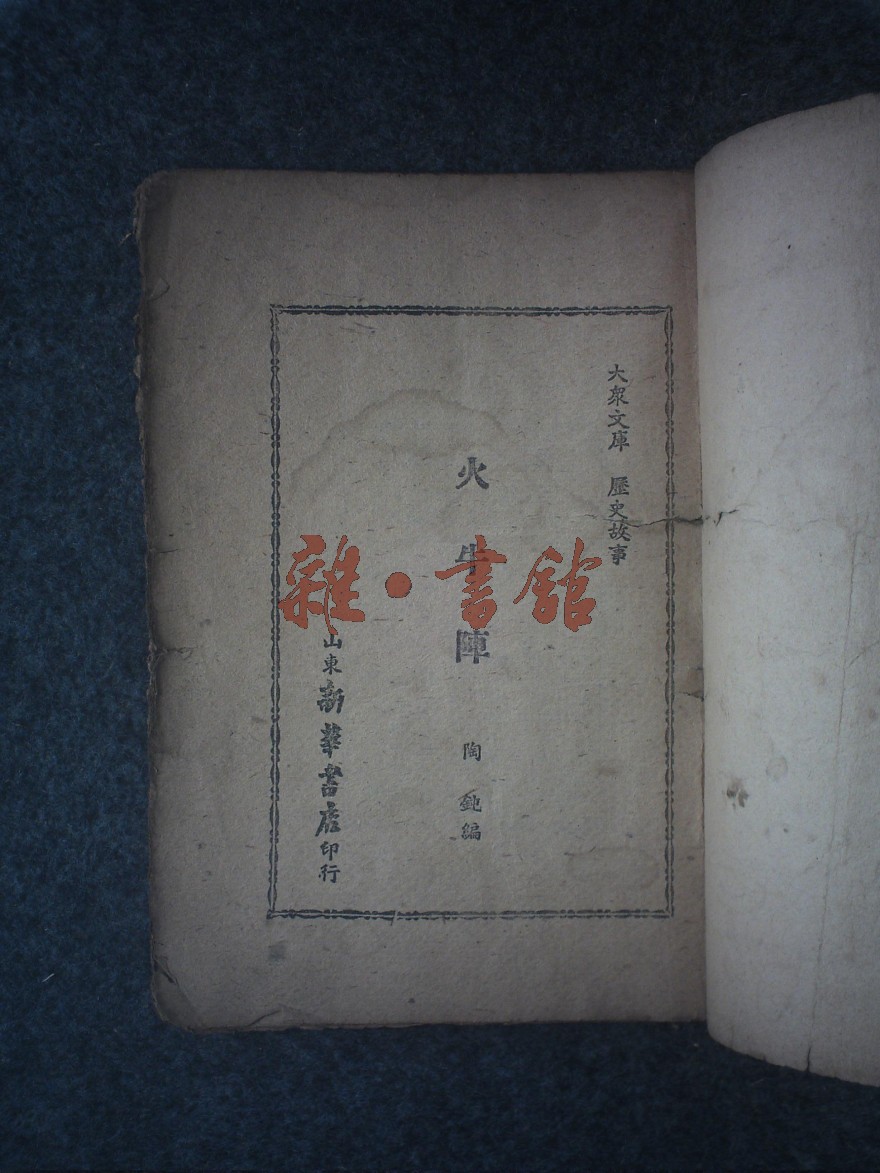 大衆文庫 歷史故事
火牛陣
陶鈍編
山東新華書店印行
雜·書館